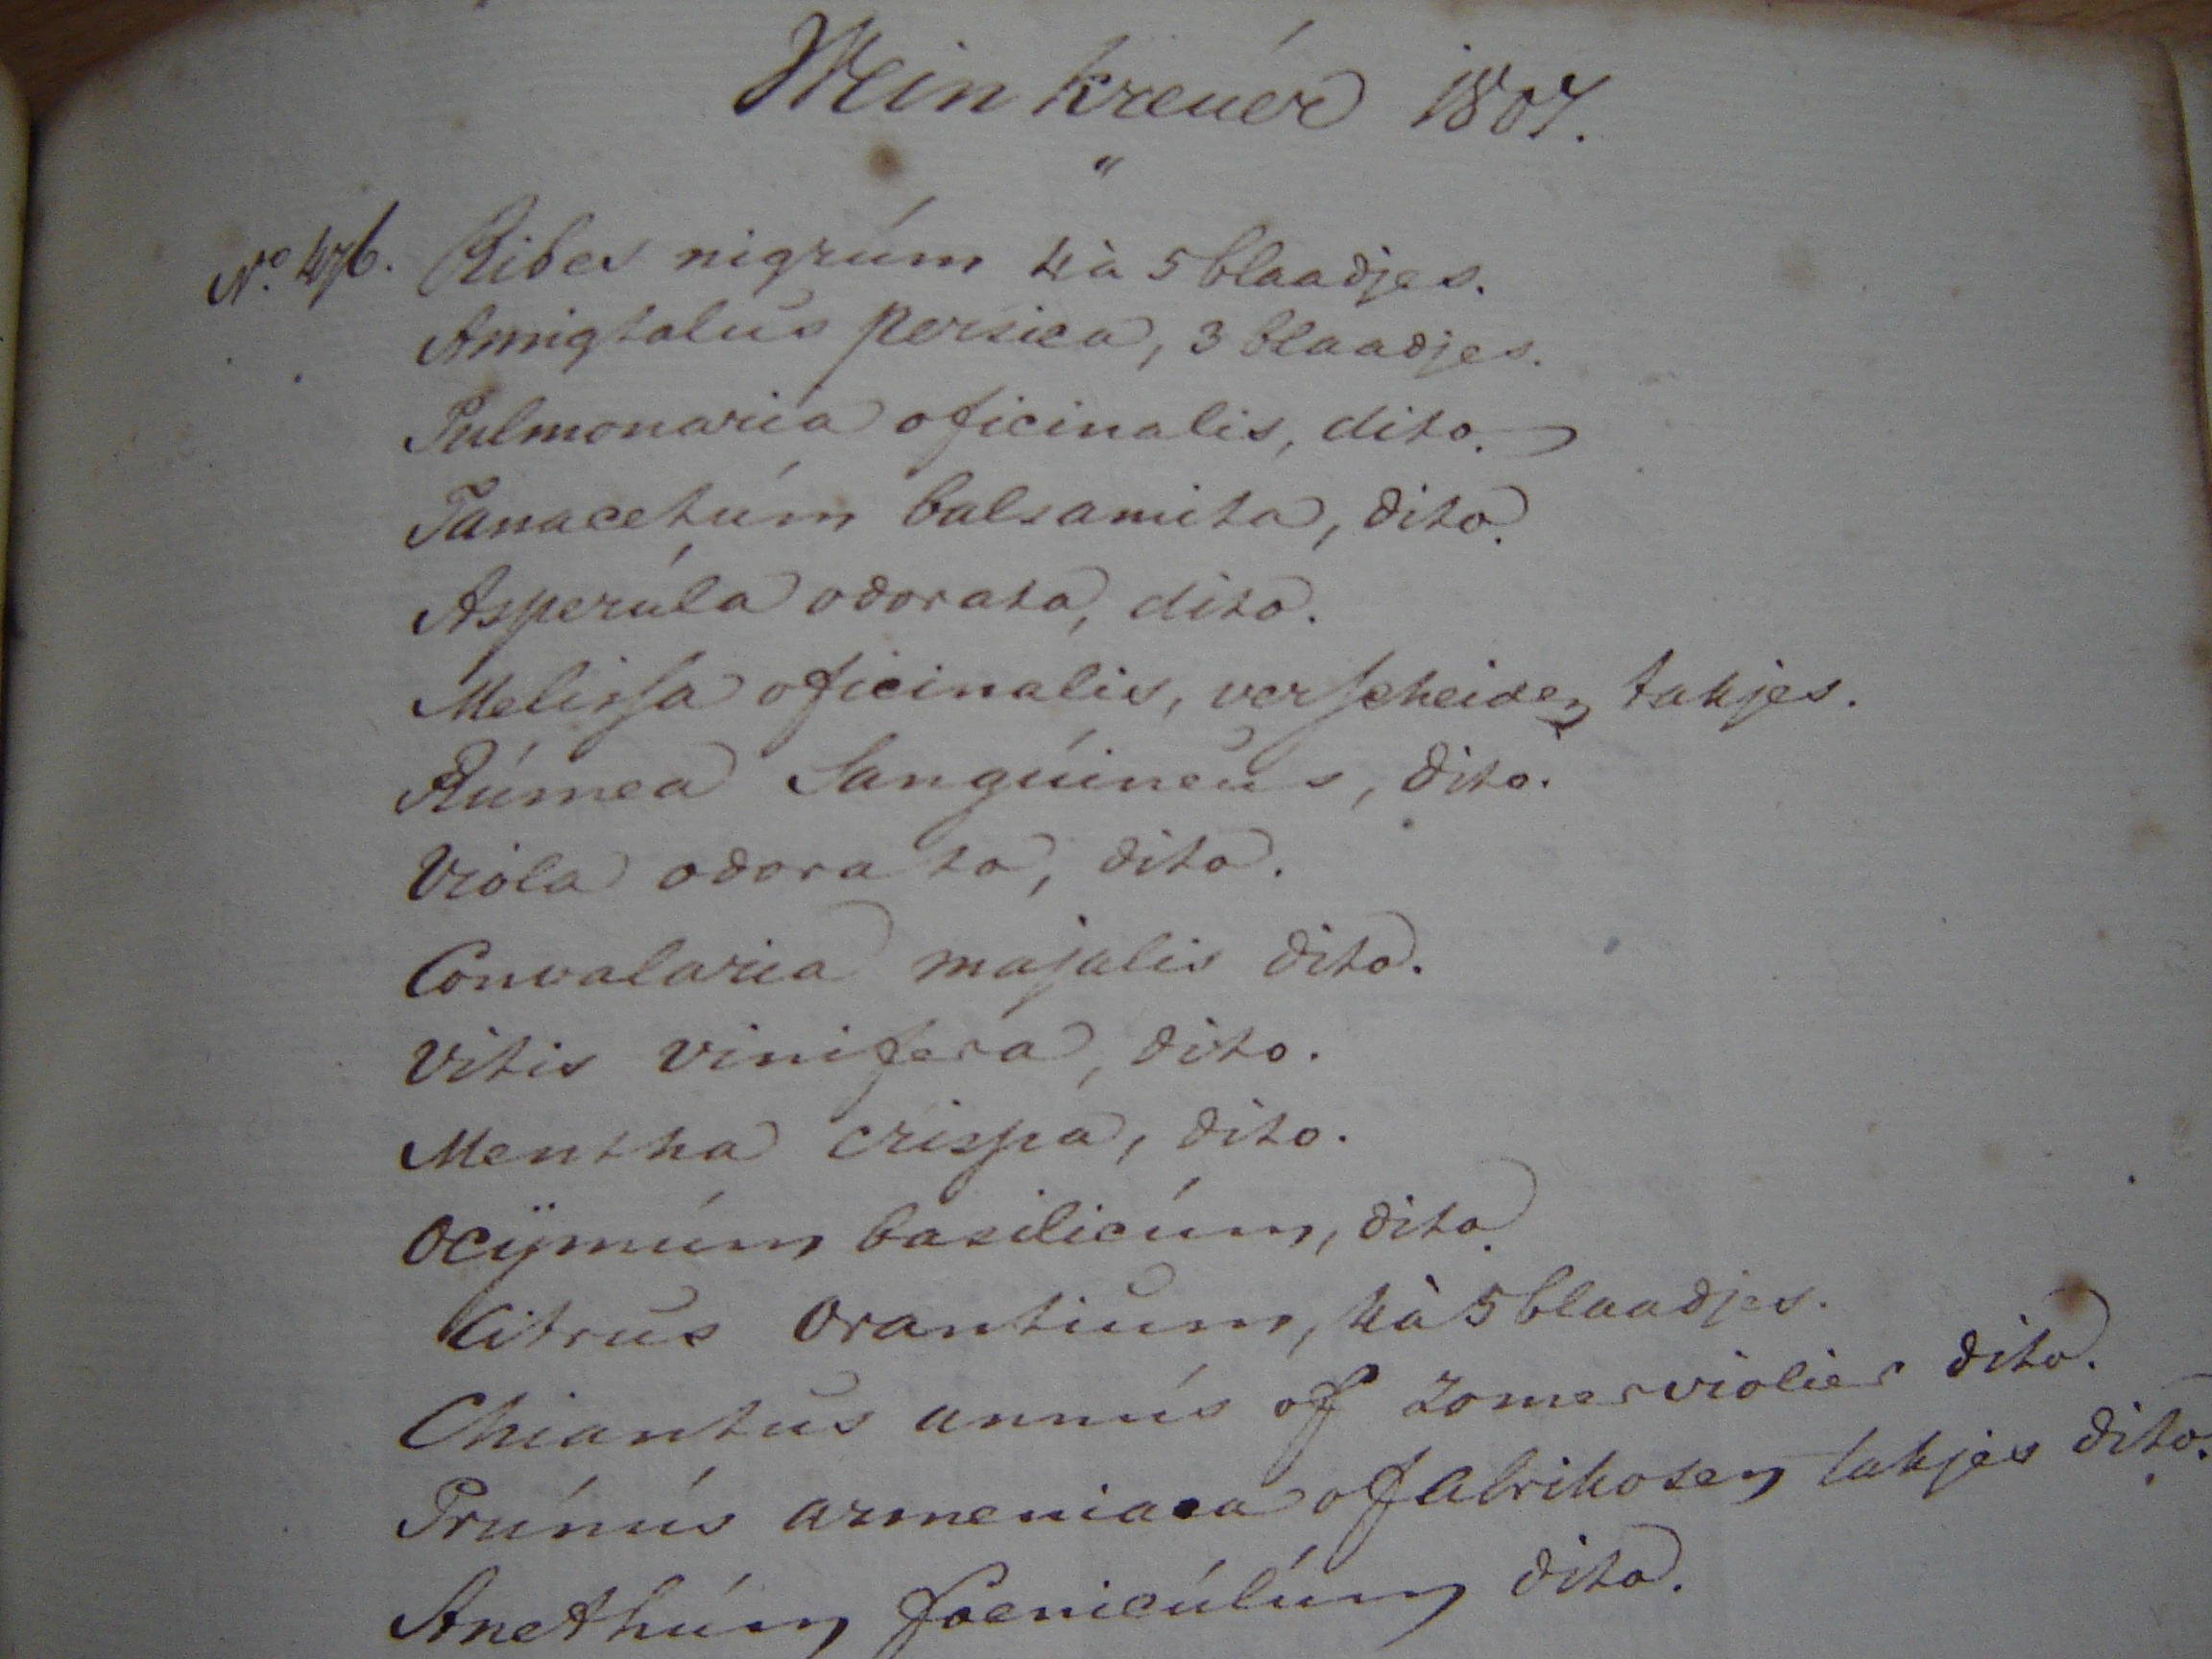 Wein kreuér 1807.
"
No. 476. Ribes nigrúm 4 à 5 blaadjes.
Amigtalus persica, 3 blaadjes.
Pulmonaria oficinalis, dito.
Tanacetúm balsamita, dito.
Asperúla odorata, dito.
Melissa oficinalis, verscheiden takjes.
Rúmea Sangúineus, dito.
Viola odorata, dito.
Convalaria majalis dito.
Vitis vinifera, dito.
Mentha crispa, dito.
Ocÿmúm basilicúm, dito.
Citrus Orantium, 4 à 5 blaadjes.
Chiantus annús of Zomerviolier dito.
Prúnús armeniaca of Abrikosen takjes dito.
Anethúm foenicúlúm dito.